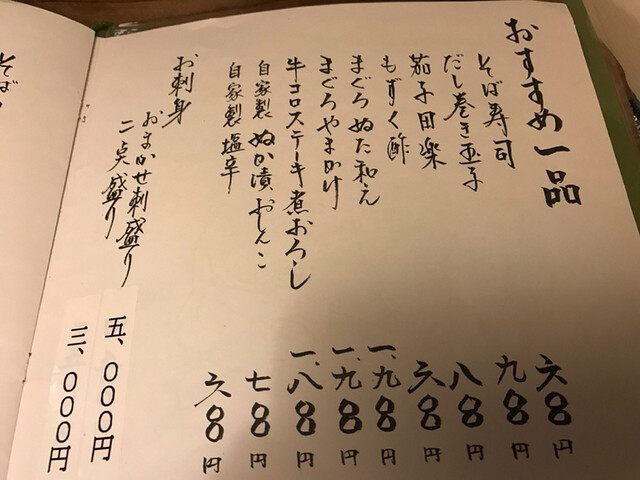 おすすめ一品
そば寿司 六〇〇円
だし巻き玉子 九〇〇円
茄子田楽 八〇〇円
もずく酢 六〇〇円
まぐろぬた和え 一、九〇〇円
まぐろやまかけ 一、九〇〇円
牛コロステーキ煮おろし 一、八〇〇円
自家製 ぬか漬おしんこ 七〇〇円
自家製 塩辛 六〇〇円
お刺身
おまかせ刺盛り 五、〇〇〇円
二点盛り 三、〇〇〇円
そば